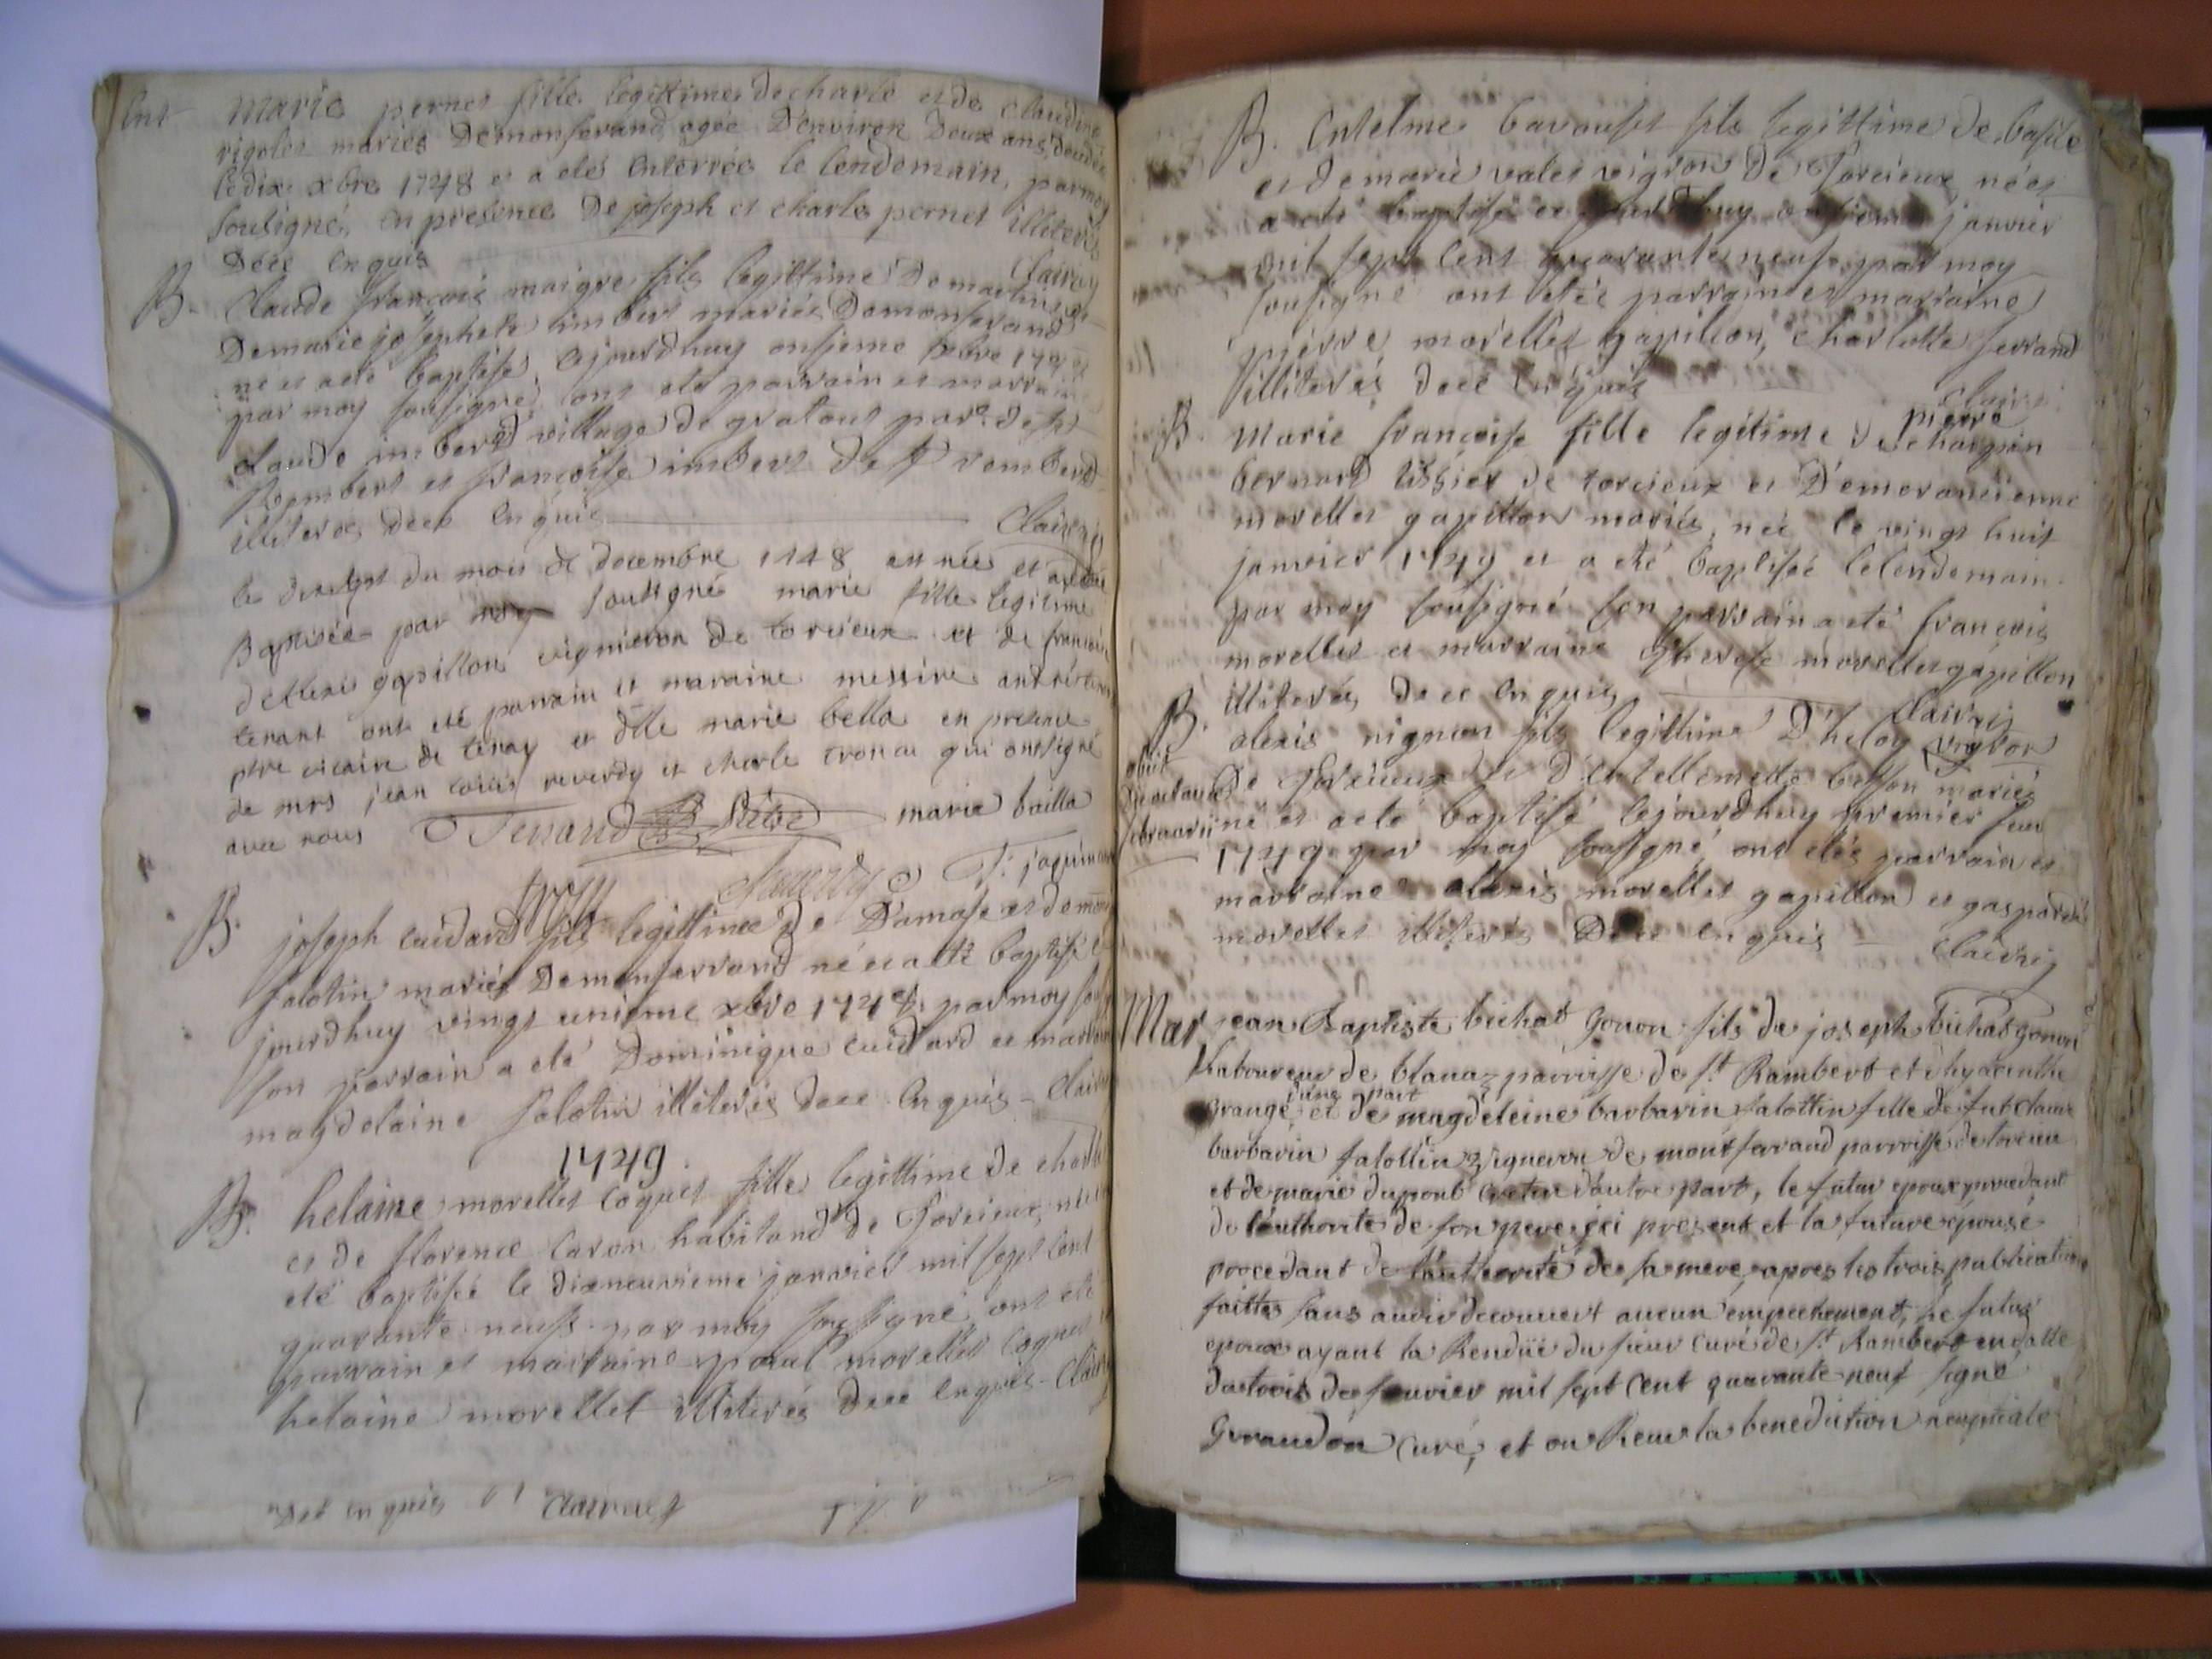 Ent marie pernet fille legittime de charle et de claudine
rigolet mariés Demonferand agée D'environ Deux ans,
le dix xbre 1748 et a eté enterrée le lendemain, par moy
sousigné, en presence De joseph et charle pernet illiterés
Dece enquis Clairvy
B. Claude françois maigre fils legittime De martin et
De marie josephete imbert mariés Demonferand
né et a eté baptisé cejourdhuy onsieme xbre 1748
par moy sousigné, ont eté parrain et marraine
claude imberd village de gratout par. de st
Rambert et françoise imbert de st rambert
illiterés dece enquis Clairvy
le du mois de decembre 1748 est née et a eté
Baptisée par soussigné marie fille legitime
d'Alexi gapillon vigneron de torcieux et de françoise
tenant ont eté parrain et maraine messire andré
ptre vicaire de tenay et dlle marie bella en presence
de mrs jean louis reverdy et charle tronca qui ont signé
avec nous marie bailla
Reverdy jaquin
B. joseph cuidard fils legittime De Damase et de
falotin mariés Demonferrand né et a eté baptisé
jourdhuy vingt unieme xbre 1748 par moy
son parrain a eté Dominique cuidard et marraine
magdelaine falotin illiterés dece enquis - Clairvy
1749
B. helaine morellet coquet fille legittime de charle
et de florence caron habitand de Torcieux, née
eté baptisée le dixneuvieme janvier mil sept cent
quarante neuf par moy sousigné ont eté
parrain et marraine paul morellet coquet
helaine morellet illiterés dece enquis - Clairvy
Det enquis Clairvy
B. Entelme bavouset fils legittime de basile
et de marie valet vigron De Torcieux né et
a eté baptisé janvier
mil sept cent quarante neuf par moy
sousigné ont étéé parrain et marraine
pierre morellet gapillon, charlotte ferrand
illiterés dece enquis clairvy
B. Marie françoise fille legitime de pierre
bernard tissier de torcieux et D'emerantienne
morellet gapillon mariés, née le vingt huit
janvier 1749 et a eté baptisée lelendemain
par moy sousigné son parrain a eté françois
morellet et marraine therese morellet gapillon
illiterés de ce enquis clairvy
B. alexis nignon fils legittime D'heloy vigron
De Torcieux et D' mariés
né et a eté baptisé cejourdhuy premier feur
1749 par moy sousigné, ont etés parrain et
marraine alexis morellet gapillon et gasparde
morellet illiterés Dece enquis - Clairvy
Mar jean Baptiste bichat gonon fils de joseph bichat gonon
Laboureur de blanaz parroisse de St Rambert et d'hyacinthe
orange, d'une part et de magdeleine barbarin falottin fille de fut claude
barbarin falottin vigneron de montferrand parroisse de torcieu
et de marie dupont d'autre part, le futur epoux procedant
de l'authorité de son pere ici present et la future epouse
procedant de l'authorité de sa mere, apres les trois publications
faittes sans avoir decouvert aucun empechement, le futur
epoux ayant la Renduë du sieur curé de St Rambert en datte
du trois de fevrier mil sept cent quarante neuf signé
Giraudon curé, et on Receu la benediction nuptiale